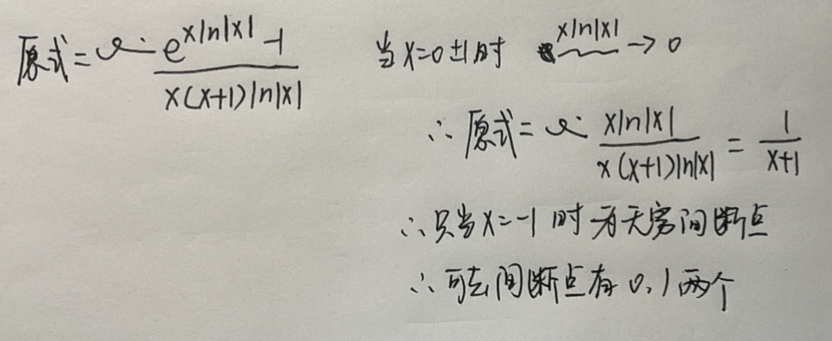 原式 = lim (e^{x ln|x|} - 1) / (x(x+1)ln|x|)
当 x=0 ±1时 x ln|x| → 0
∴ 原式 = lim (x ln|x|) / (x(x+1)ln|x|) = 1 / (x+1)
∴ 只当 x=-1 时 为无穷间断点
∴ 可去间断点有 0, 1 两个